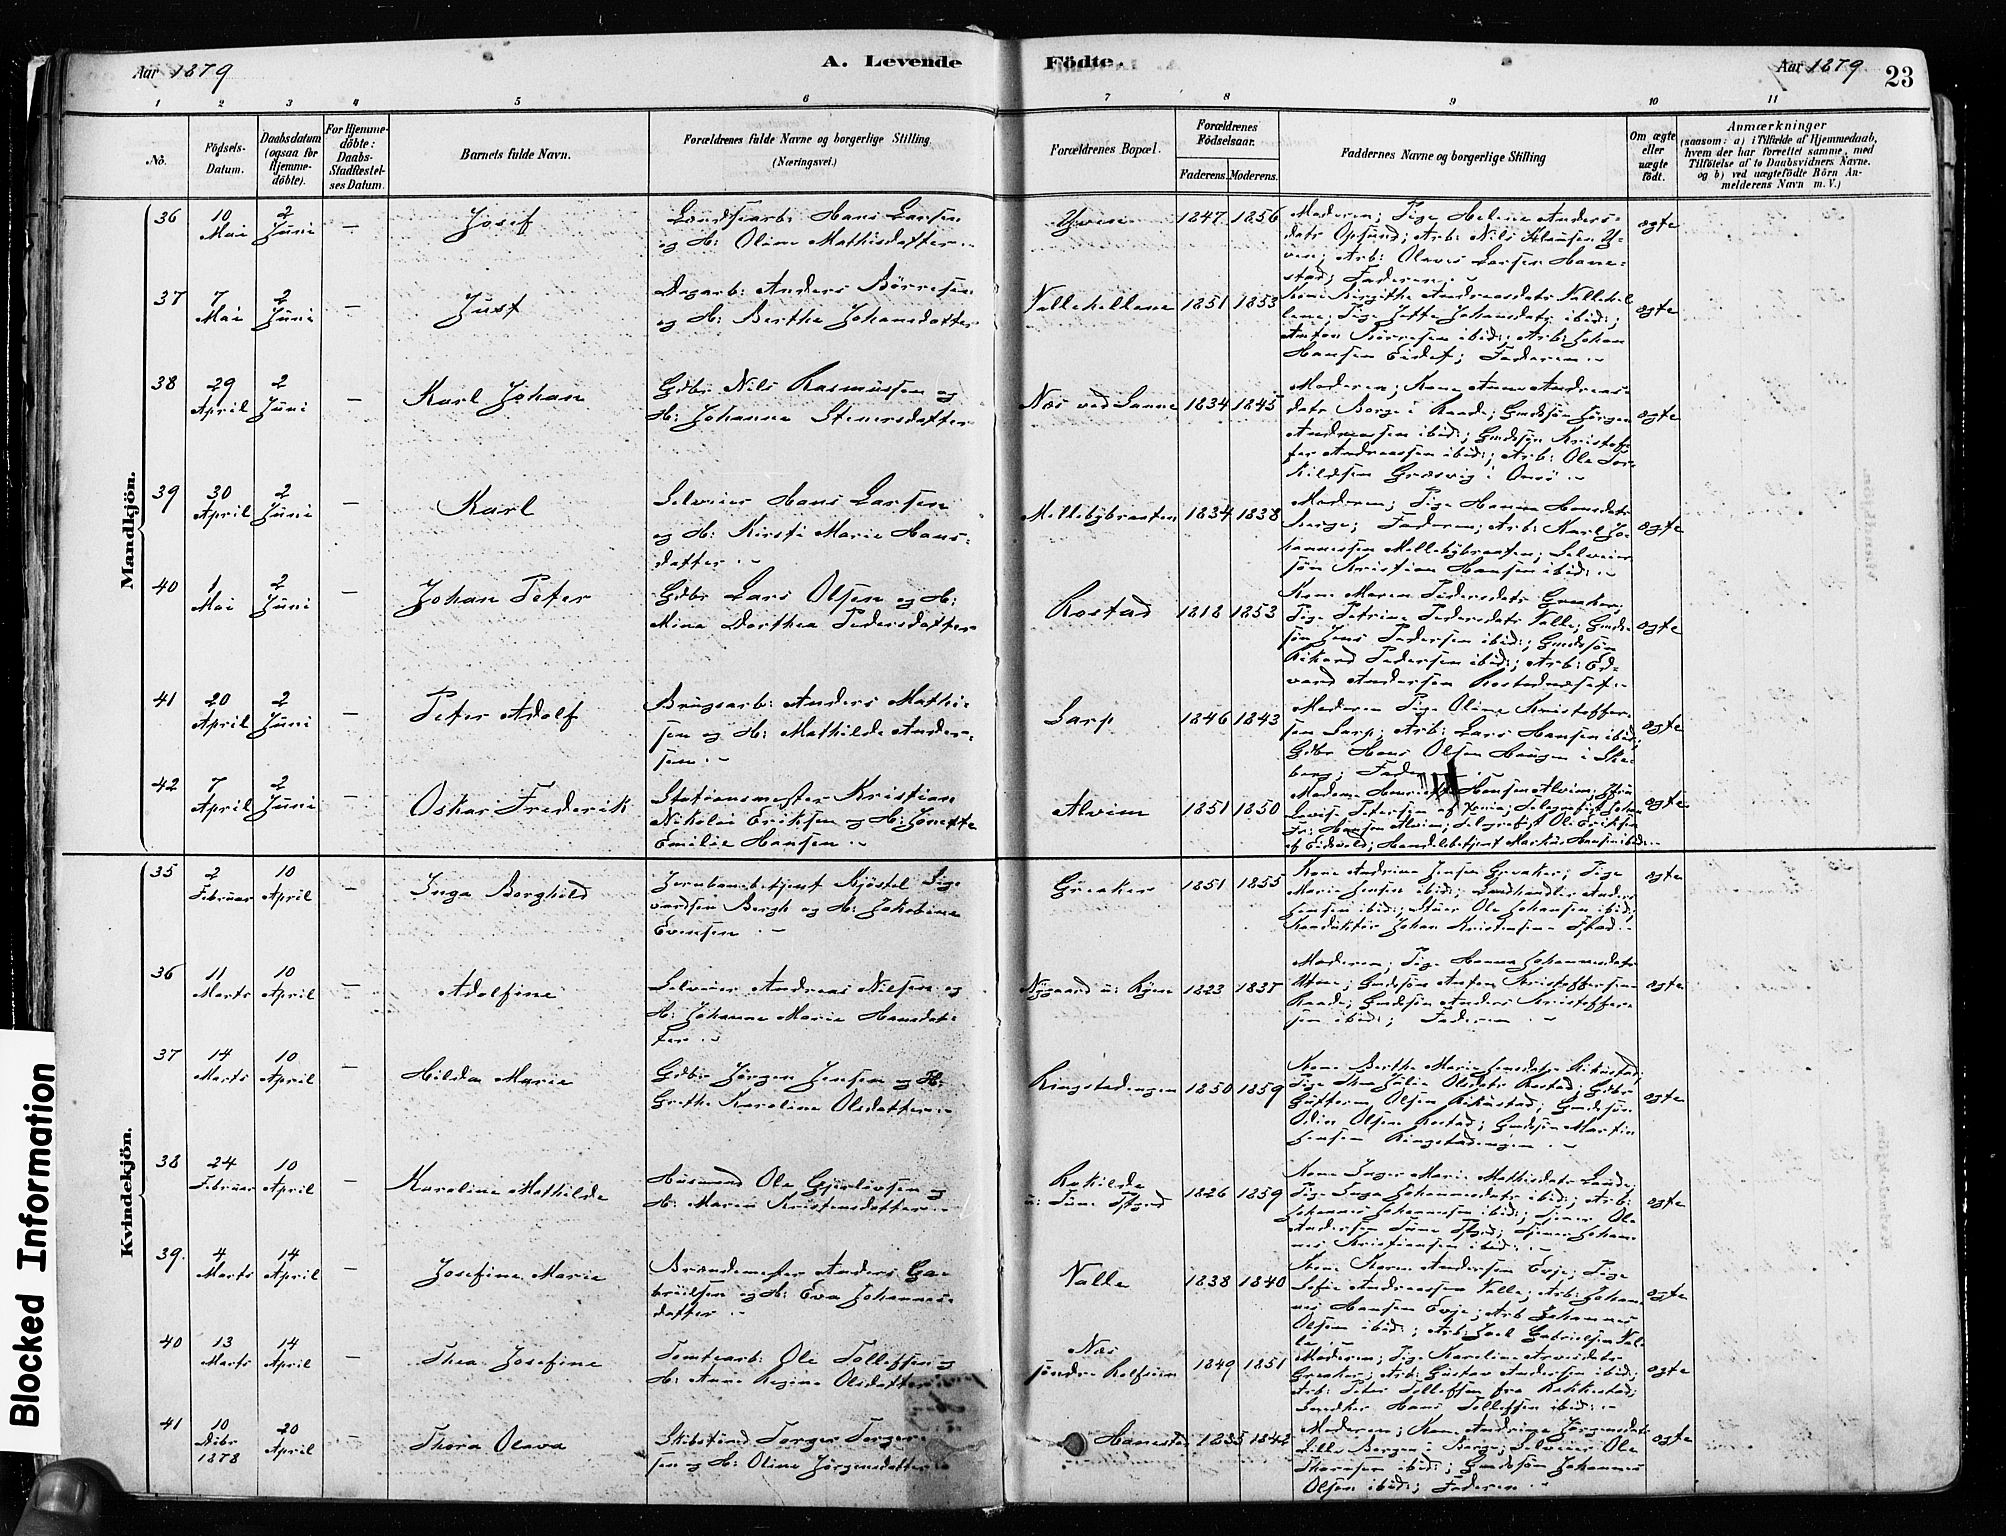 Aar 1879
A. Levende Födte.
Aar 1879
23
1 2 3 4 5 6 7 8 9 10 11
No.
Födsels-Datum.
Daabsdatum (ogsaa for Hjemme-döbte).
For Hjemme-döbte: Daabs-Stadfæstel-ses Datum.
Barnets fulde Navn.
Forældrenes fulde Navne og borgerlige Stilling
(Næringsvei.)
Forældrenes Bopæl.
Forældrenes Födselsaar.
Faderens. Moderens.
Faddernes Navne og borgerlige Stilling
Om ægte eller uægte födt.
Anmærkninger
(saasom: a) i Tilfælde af Hjemmedaab,
hvem der har forrettet samme, med
Tilföielse af to Daabsvidners Navne.
og b) ved uægtefödte Börn An-
melderens Navn m. V.)
Mandkjön.
36 10 Mai 2 Juni — Josef
Hans Larsen
og H: Oline Mathisdatter
1847 1856
Moderen; Pige Helene Anders-
datr Opsund; Arb: Nils Klausen
Arb: Olaves Larsen Hane-
stad; Faderen
ægte
37 7 Mai 2 Juni — Just
Dagarb: Anders Börresen
og H: Berthe Johansdatter
Vallehellene 1851 1853
Kone Birgithe Andreasdatr Vallehel
lene; Pige Jutte Johansdatr ibid:;
Anton Börresen ibid:; Arb: Johan
Hansen Eidet; Faderen
ægte
38 29 April 2 Juni — Karl Johan
Gdbr Nils Rasmussen og
H: Johanne Stenersdatter
Næs ved Sanne 1834 1845
Moderen; Kone Anne Andreas-
datr Borge i Raade; Gmdsön Jörgen
Andreassen ibid:; Gmdsön Kristof-
fer Andreassen ibid:; Arb: Ole Tor-
kildsen Græsvig i Onsö
ægte
39 30 April 2 Juni — Karl
Selveier Hans Larsen
og H: Kirsti Marie Hans-
datter
Mellebybraaten 1834 1838
Moderen; Pige Hanna Hansdatr
Berge; Faderen; Arb: Karl Jo-
hannessen Mellebybraaten; Selveier
sön Kristian Hansen ibid:
ægte
40 1 Mai 2 Juni — Johan Peter
Gdbr Lars Olsen og H:
Mina Dorthea Pedersdatter
Rostad 1818 1853
Kone Maren Pedersdatr Greaker;
Pige Petrine Pedersdatr Valle; Gmds-
sön Jens Pedersen ibid:; Gmdssön
Rikard Pedersen ibid:; Arb: Ed-
vard Andersen Rostadnæset
ægte
41 20 April 2 Juni — Peter Adolf
Brugsarb: Anders Mathi-
sen og H: Mathilde Ander-
sen
Sarp 1846 1843
Moderen Pige Oline Kristoffer-
sen Sarp; Arb: Lars Hansen ibid:;
Gdbr Hans Olsen Haugen i Skje-
berg;
ægte
42 7 April 2 Juni — Oskar Frederik
Stationsmester Kristian
Nikolai Eriksen og H: Jonette
Emilie Hansen
Alvim 1851 1850
Hansen Alvim;
Telegrafist
Hansen Alvim; Telegrafist Ole Eriksen
af Eidsvold; Handelsbetjent Markus Hansen ibid:
ægte
Kvindekjön.
35 2 Februar 10 April — Inga Borghild
Jernbanebetjent Kjöstel Sige
vardsen Bergh og H: Jakobine
Evensen
Greaker 1851 1855
Kone Andrine Jensen Greaker; Pige
Marie Jensen ibid:; Landhandler Anders
Jensen ibid:; Ole Johansen ibid:;
Konduktör Johan Kristensen
ægte
36 11 Marts 10 April — Adolfine
Selveier Andreas Nilsen og
H: Johanne Marie Hansdat-
ter
Nygaard u: Ryen 1823 1837
Moderen; Pige Hanna Johannesdatr
Gmdsön Anton Kristoffersen
Raade; Gmdsön Anders Kristoffer-
sen ibid:; Faderen
ægte
37 14 Marts 10 April — Hilda Marie
Gdbr Jörgen Jensen og H:
Grethe Karoline Olsdatter
Ringstadengen 1850 1859
Kone Berthe Marie Jensdatr
Pige Thea Julie Olsdatr Rostad; Gdbr
Guttorm Olsen Rikustad; Gmdssön
Odin Olsen Rostad; Gmdssön Martin
Jensen Ringstadengen
ægte
38 24 Februar 10 April — Karoline Mathilde
Husmand Ole Gjerlövsen og
H: Maren Kristensdatter
Rakilde
u: Tune 1826 1859
Kone Inger Marie Mathisdatr Lande;
Pige Inga Johannesdatr ibid:; Arb:
Johannes Johannessen ibid:; Tjener Ole
Andersen Tune; Tjener Johan-
nes Kristiansen ibid:
ægte
39. 4 Marts 14 April — Josefine Marie
Brændemester Anders Ga-
brielsen og H: Eva Johannes-
datter
Valle 1838 1840
Kone Karen Andersen Evje; Pige
Sofie Andreassen Valle; Arb: Johan-
nes Hansen Evje; Arb Johannes
Olsen ibid:; Arb: Joel Gabrielsen Val-
le
ægte
40 13 Marts 14 April — Thea Josefine
Tomtearb: Ole Tollefsen og
H: Anne Regine Olsdatter
Næs
söndre Rolfsöen 1849 1851
Moderen; Pige Karoline Arvesdatr
Greaker; Arb: Gustav Andersen ibid:;
Arb: Peter Tollefsen fra Rakkestad;
Snedker Hans Tollefsen ibid:
ægte
41 10 Debr 1878 20 April — Thora Oleva
Skibstömd Torger Torger-
sen og H: Oline Jörgensdatter
Hanestad 1835 1842
Moderen; Kone Andrine Jörgensdatr
Lille Bergen i Berge; Selveier Ole
Thoresen ibid:; Gmdssön Johannes
Olsen ibid:; Faderen
ægte
Blocked Information